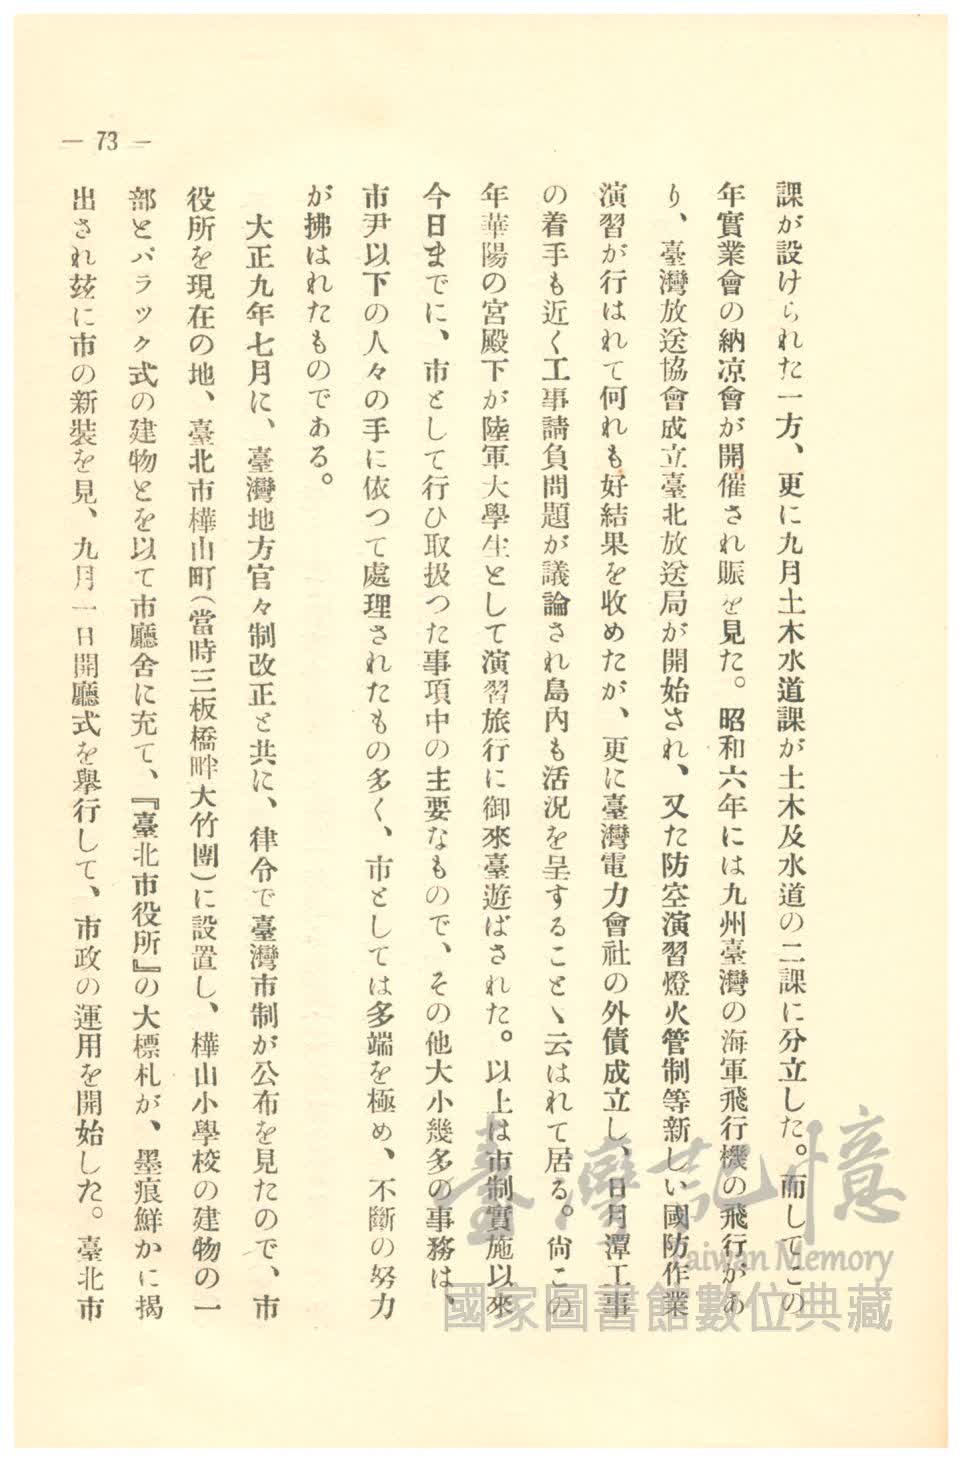 — 73 —
課が設けられた一方、更に九月土木水道課が土木及水道の二課に分立した。而してこの
年實業會の納凉會が開催され賑を見た。昭和六年には九州臺灣の海軍飛行機の飛行があ
り、臺灣放送協會成立臺北放送局が開始され、又た防空演習燈火管制等新しい國防作業
演習が行はれて何れも好結果を收めたが、更に臺灣電力會社の外債成立し、日月潭工事
の着手も近く工事請負問題が議論され島內も活況を呈することゝ云はれて居る。尙この
年華陽の宮殿下が陸軍大學生として演習旅行に御來臺遊ばされた。以上は市制實施以來
今日までに、市として行ひ取扱つた事項中の主要なもので、その他大小幾多の事務は、
市尹以下の人々の手に依つて處理されたもの多く、市としては多端を極め、不斷の努力
が拂はれたものである。
大正九年七月に、臺灣地方官々制改正と共に、律令で臺灣市制が公布を見たので、市
役所を現在の地、臺北市樺山町(當時三板橋畔大竹圍)に設置し、樺山小學校の建物の一
部とバラック式の建物とを以て市廳舍に充て、『臺北市役所』の大標札が、墨痕鮮かに揭
出され玆に市の新裝を見、九月一日開廳式を擧行して、市政の運用を開始した。臺北市
臺灣記憶
Taiwan Memory
國家圖書館數位典藏